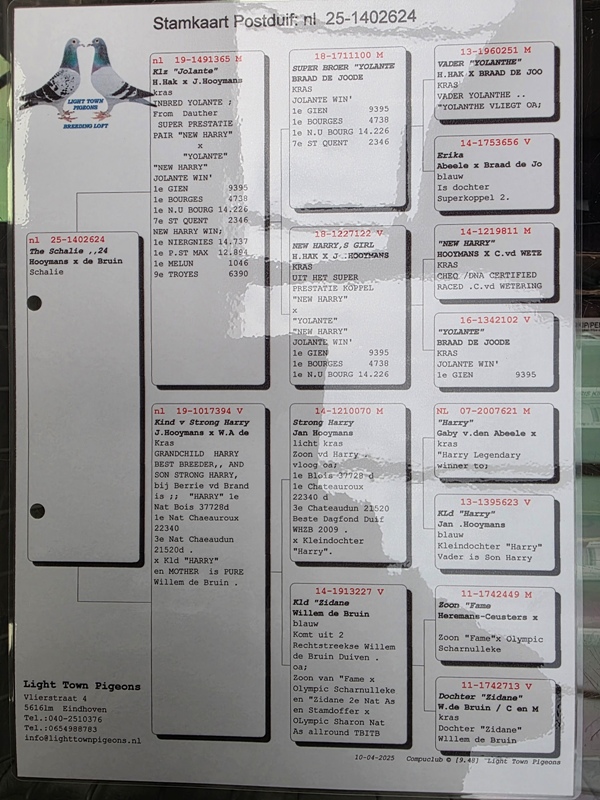 Stamkaart Postduif: nl 25-1402624
LIGHT TOWN
PIGEONS
BREEDING LOFT
nl 25-1402624
The Schalie ,,24
Hooymans x de Bruin
Schalie
nl 19-1491365 M
Klz "Jolante"
H.Hak x J.Hooymans
kras
INBRED YOLANTE ;
From Dauther
SUPER PRESTATIE
PAIR "NEW HARRY"
x
"YOLANTE"
"NEW HARRY"
JOLANTE WIN'
1e GIEN 9395
1e BOURGES 4738
1e N.U BOURG 14.226
7e ST QUENT 2346
NEW HARRY WIN;
1e NIERGNIES 14.737
1e P.ST MAX 12.894
1e MELUN 1046
9e TROYES 6390
nl 19-1017394 V
Kind v Strong Harry
J.Hooymans x W.A de
Kras
GRANDCHILD HARRY
BEST BREEDER,, AND
SON STRONG HARRY,
bij Berrie vd Brand
is ;; "HARRY" 1e
Nat Bois 37728d
1e Nat Chaeauroux
22340
3e Nat Chaeaudun
21520d .
x Kld "HARRY"
en MOTHER is PURE
Willem de Bruin .
18-1711100 M
SUPER BROER "YOLANTE
BRAAD DE JOODE
KRAS
JOLANTE WIN'
1e GIEN 9395
1e BOURGES 4738
1e N.U BOURG 14.226
7e ST QUENT 2346
18-1227122 V
NEW HARRY,S GIRL
H.HAK X J .HOOYMANS
KRAS
UIT HET SUPER
PRESTATIE KOPPEL
"NEW HARRY"
x
"YOLANTE"
"NEW HARRY"
JOLANTE WIN'
1e GIEN 9395
1e BOURGES 4738
1e N.U BOURG 14.226
14-1210070 M
Strong Harry
Jan Hooymans
licht kras
Zoon vd Harry .
vloog oa;
1e Blois 37728 d
1e Chateauroux
22340 d
3e Chateaudun 21520
Beste Dagfond Duif
WHZB 2009 .
x Kleindochter
"Harry".
14-1913227 V
Kld "Zidane
Willem de Bruin
blauw
Komt uit 2
Rechtstreekse Willem
de Bruin Duiven .
oa;
Zoon van "Fame x
Olympic Scharnulleke
en "Zidane 2e Nat As
en Stamdoffer x
OLympic Sharon Nat
As allround TBITB
13-1960251 M
VADER "YOLANTHE"
H.HAK X BRAAD DE JOO
KRAS
VADER YOLANTHE ..
"YOLANTHE VLIEGT OA;
14-1753656 V
Erika
Abeele x Braad de Jo
blauw
Is dochter
Superkoppel 2.
14-1219811 M
"NEW HARRY"
HOOYMANS X C.vd WETE
KRAS
CHEQ /DNA CERTIFIED
RACED .C.vd WETERING
16-1342102 V
"YOLANTE"
BRAAD DE JOODE
KRAS
JOLANTE WIN'
1e GIEN 9395
NL 07-2007621 M
"Harry"
Gaby v.den Abeele x
kras
"Harry Legendary
winner to;
13-1395623 V
KLd "Harry"
Jan .Hooymans
blauw
Kleindochter "Harry"
Vader is Son Harry
11-1742449 M
Zoon "Fame
Heremans-Ceusters x
Zoon "Fame"x Olympic
Scharnulleke
11-1742713 V
Dochter "Zidane"
W.de Bruin / C en M
kras
Dochter "Zidane"
Wllem de Bruin
Light Town Pigeons
Vlierstraat 4
5616lm Eindhoven
Tel.:040-2510376
Tel.;0654988783
info@lighttownpigeons.nl
10-04-2025 Compuclub © [9.48] "Light Town Pigeons